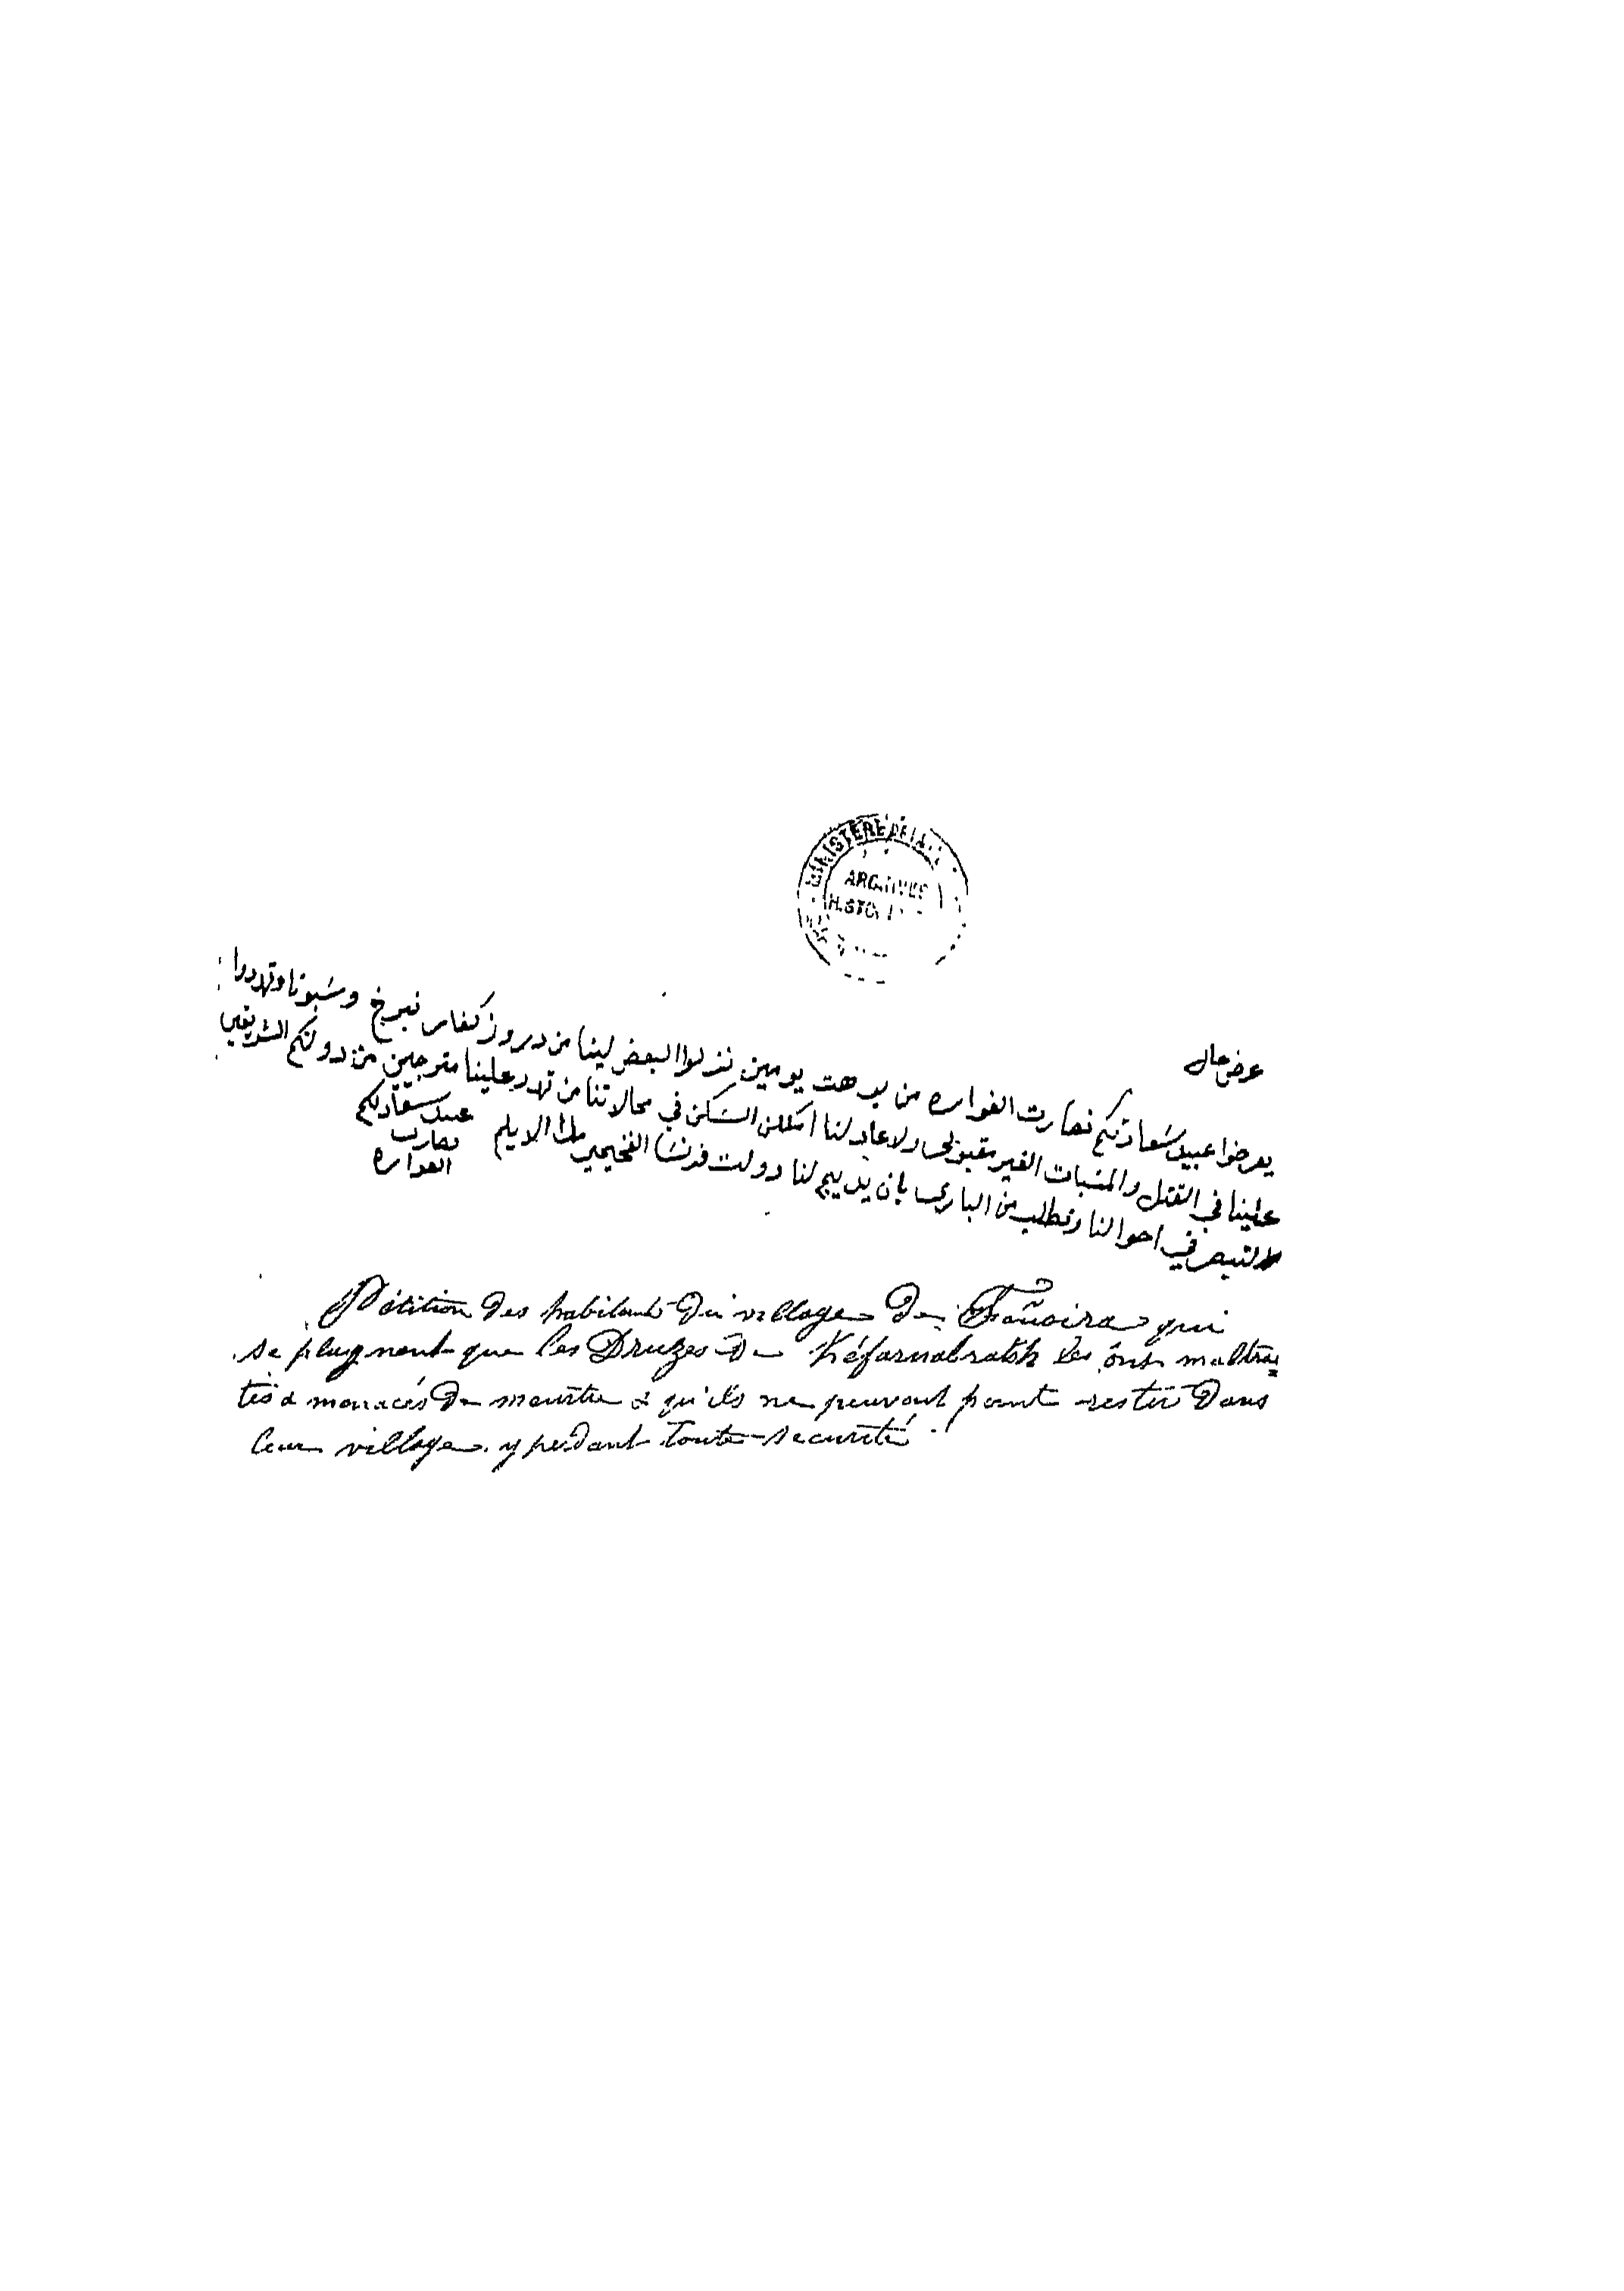 MINISTERE DE LA
ARCHIVES
HISTO
عرض حال
يعرضوا عبيد سعادتكم نصارت الفواره من بدهت يومين نزلوا البعض لينا من دروز كفار نبرخ وسبونا وتهددوا
علينا في القتل والمسبات الغير مقبولي ولا عاد لنا امكان السكن في محالاتنا من تهدد علينا مترجين من دولتكم الشريفي
التبصر في احوالنا ونطلب من الباري بان يديم لنا دولت فرنسا الفخيمي مدا الايام
عبيد سعادتكم
نصارت
الفواره
Pétition des habitants du village de Faouaira qui
se plaignent que les Druzes de Kéfarnabrakh les ont maltrai
tés & menacés de meurtre & qu'ils ne peuvent point rester dans
leur village y perdant toute sécurité.